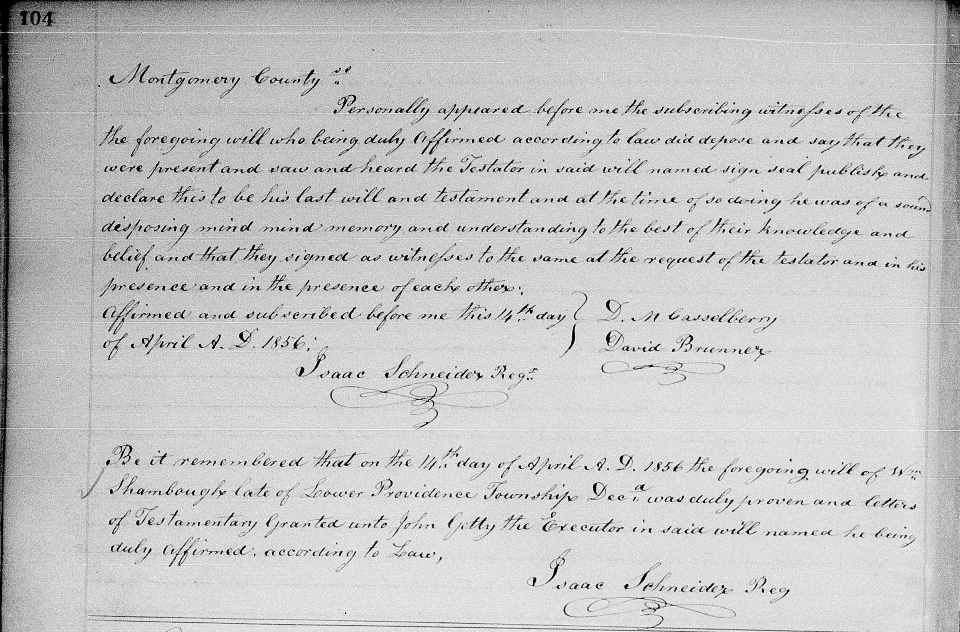 104
Montgomery County ss
Personally appeared before me the subscribing witnesses of the
the foregoing will who being duly Affirmed according to law did depose and say that they
were present and saw and heard the Testator in said will named sign seal publish and
declare this to be his last will and testament and at the time of so doing he was of a sound
disposing mind mind memory and understanding to the best of their knowledge and
belief and that they signed as witnesses to the same at the request of the testator and in his
presence and in the presence of each other.
Affirmed and subscribed before me this 14th day } D. M Casselberry
of April A. D. 1856; David Brunner
Isaac Schneider Regr
Be it remembered that on the 14th day of April A. D. 1856 the foregoing will of Wm
Shambough late of Lower Providence Township Decd was duly proven and letters
of Testamentary Granted unto John Getty the Executor in said will named he being
duly Affirmed, according to Law,
Isaac Schneider Reg